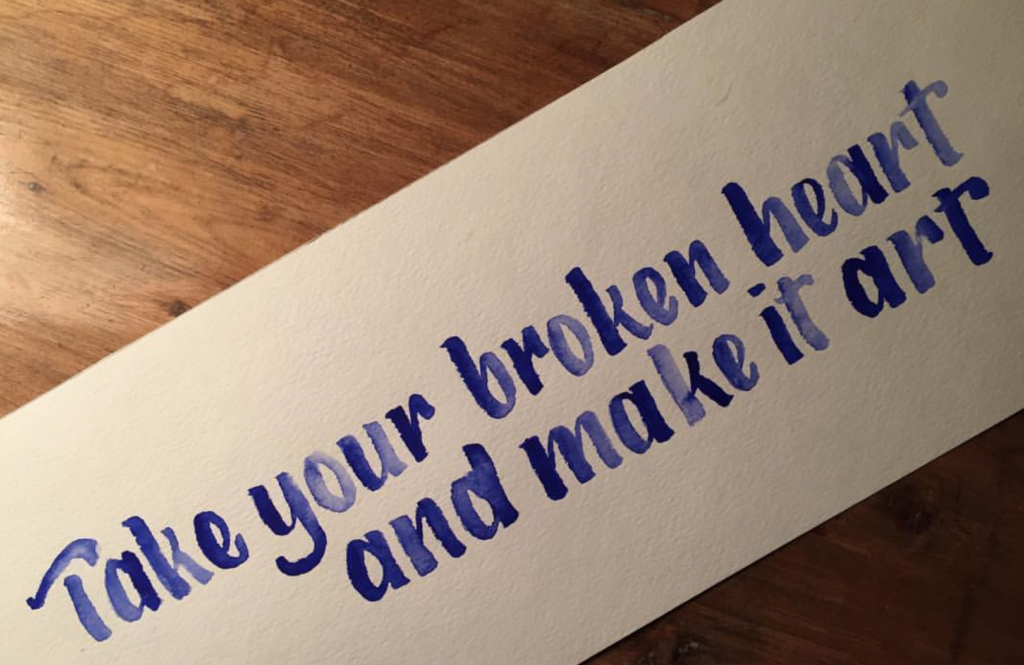 Take your broken heart
and make it art